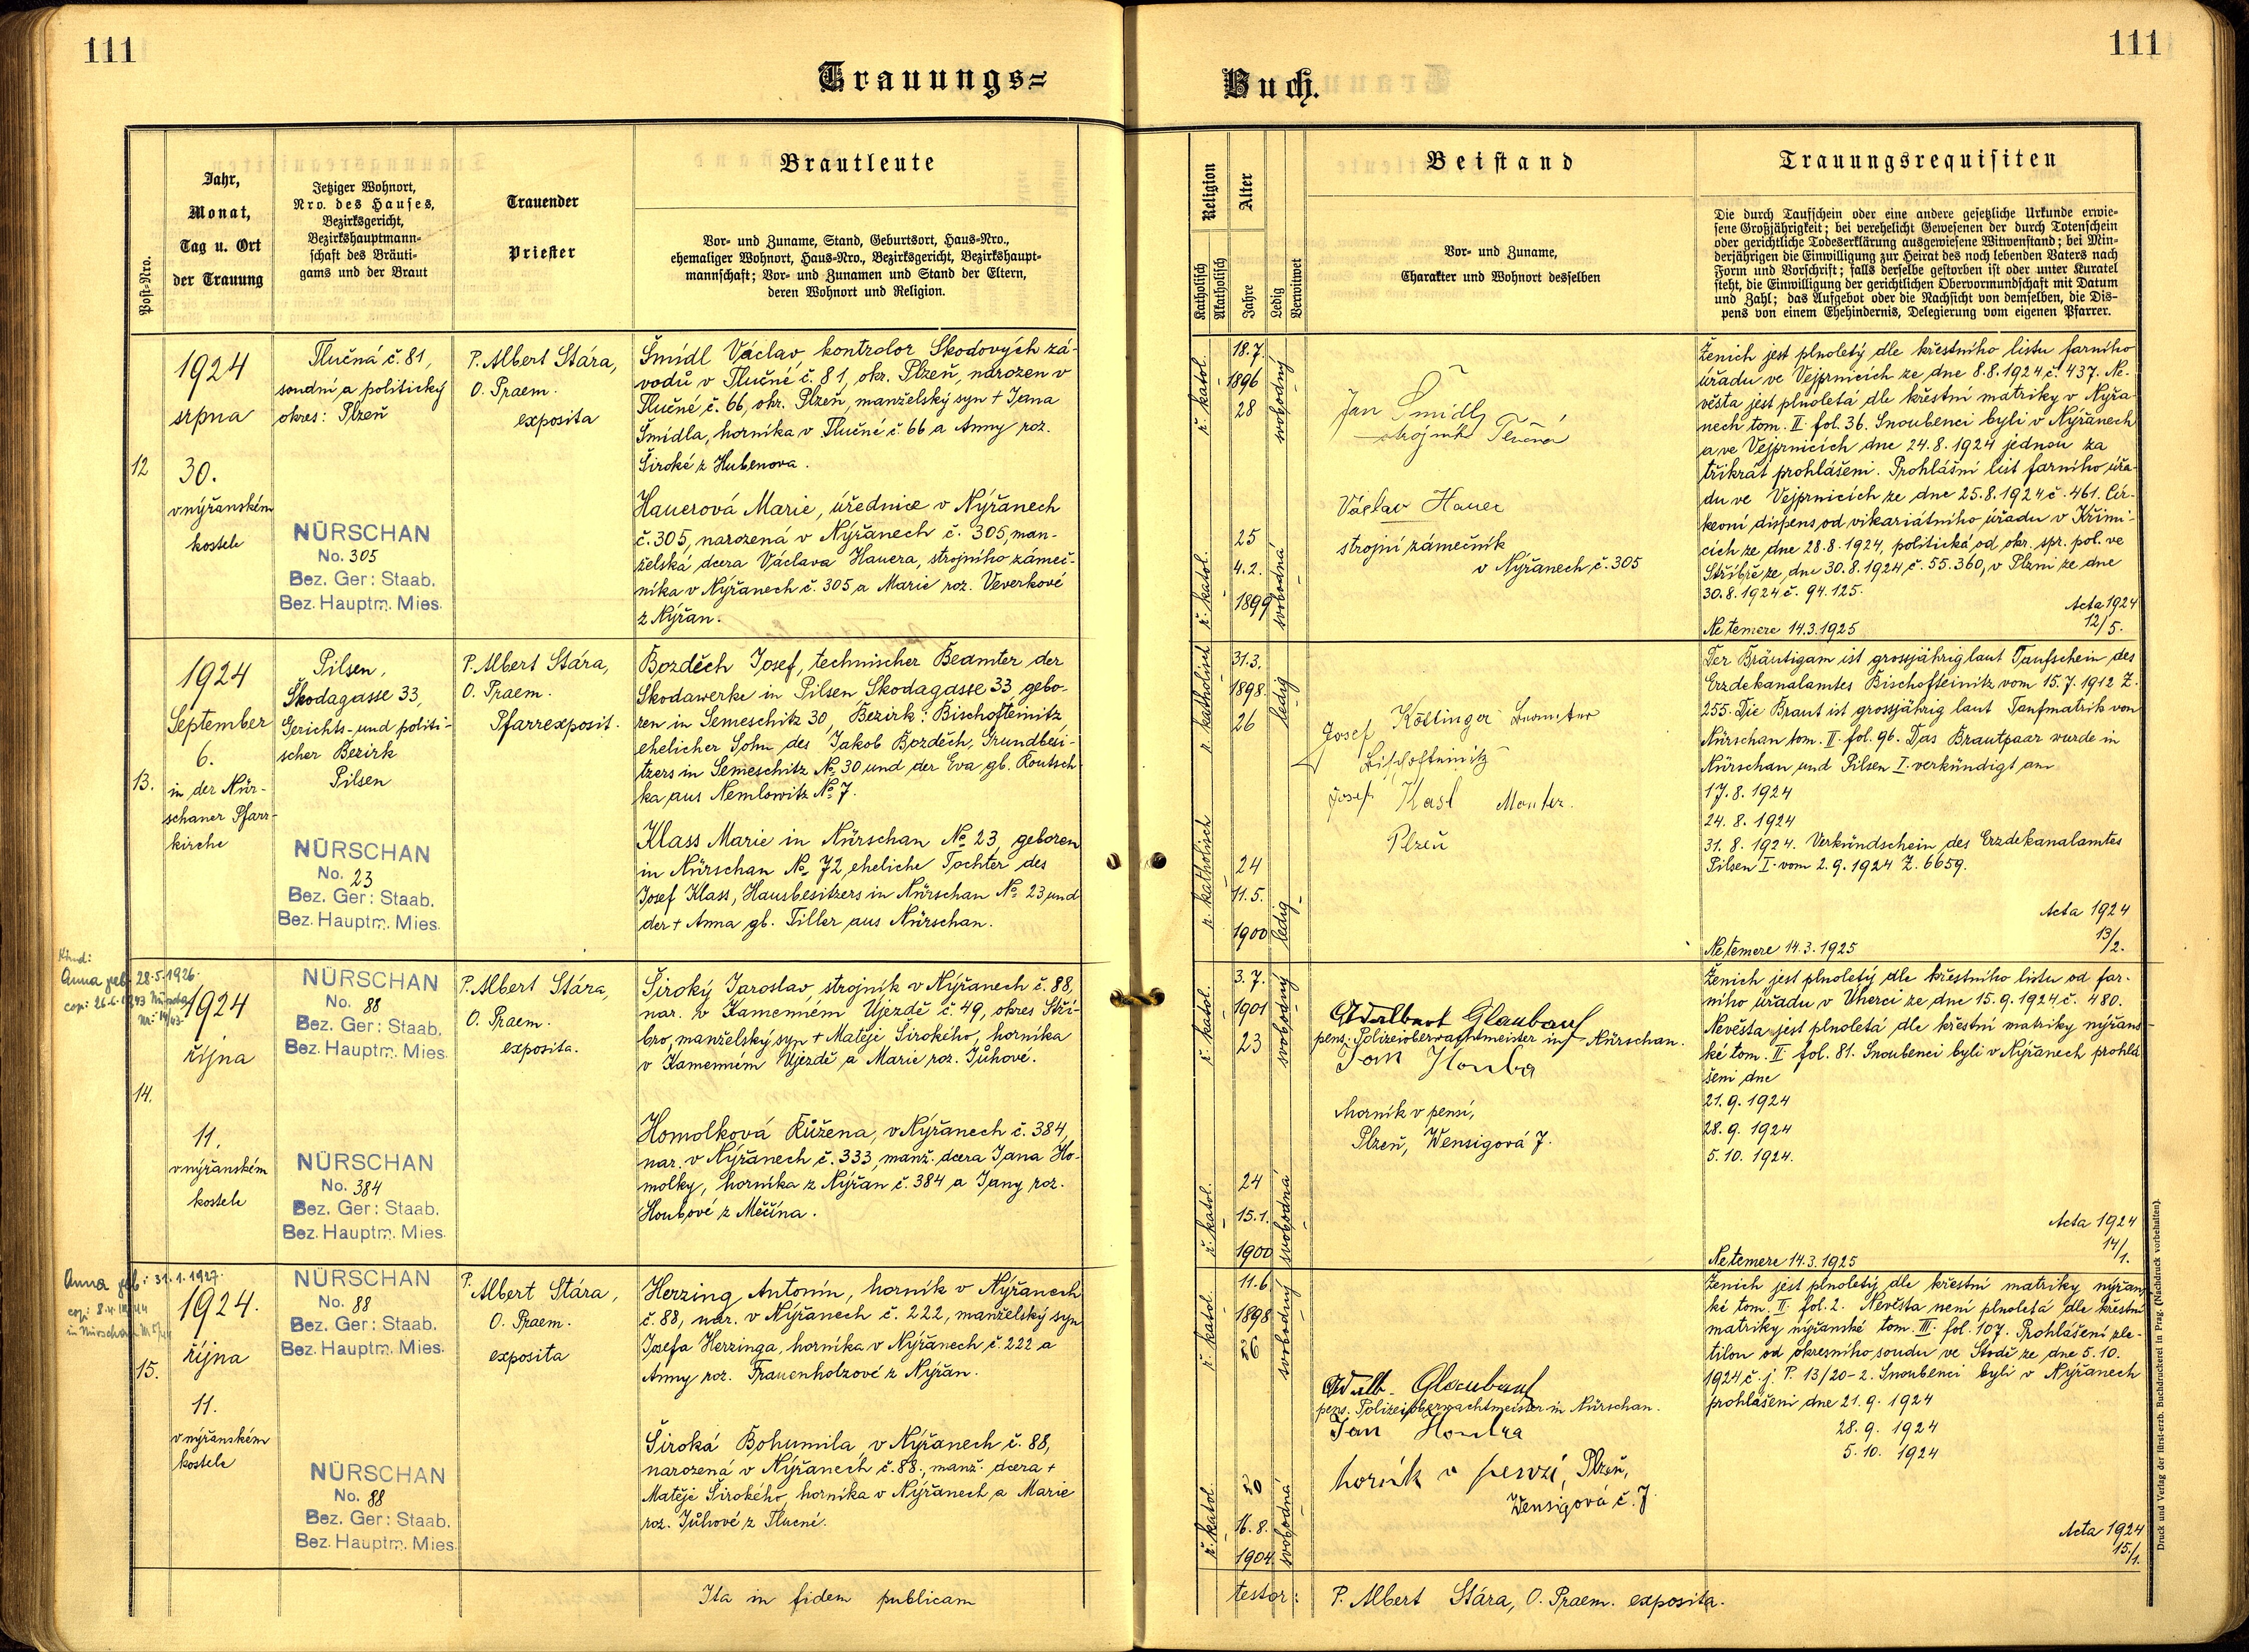 111
111
Trauungs=
Buch.
Post-Nro.
Jahr,
Monat,
Tag u. Ort
der Trauung
Jetziger Wohnort,
Nro. des Hauses,
Bezirksgericht,
Bezirkshauptmann-
schaft des Bräuti-
gams und der Braut
Trauender
Priester
Brautleute
Vor- und Zuname, Stand, Geburtsort, Haus-Nro.,
ehemaliger Wohnort, Haus-Nro., Bezirksgericht, Bezirkshaupt-
mannschaft; Vor- und Zunamen und Stand der Eltern,
deren Wohnort und Religion.
Religion
Katholisch
Akatholisch
Alter
Jahre
Ledig
Verwitwet
Beistand
Vor- und Zuname,
Charakter und Wohnort desselben
Trauungsrequisiten
Die durch Taufschein oder eine andere gesetzliche Urkunde erwie-
sene Großjährigkeit; bei verehelicht Gewesenen der durch Totenschein
oder gerichtliche Todeserklärung ausgewiesene Witwenstand; bei Min-
derjährigen die Einwilligung zur Heirat des noch lebenden Vaters nach
Form und Vorschrift; falls derselbe gestorben ist oder unter Kuratel
steht, die Einwilligung der gerichtlichen Obervormundschaft mit Datum
und Zahl; das Aufgebot oder die Nachsicht von demselben, die Dis-
pens von einem Ehehindernis, Delegierung vom eigenen Pfarrer.
12
1924
srpna
30.
v nýřanském
kostele
Tlučná č. 81,
soudní a politický
okres: Plzeň
NÜRSCHAN
No. 305
Bez. Ger: Staab.
Bez. Hauptm. Mies.
P. Albert Stára,
O. Praem.
exposita
Šmídl Václav, kontrolor Škodových zá-
vodů v Tlučné č. 81, okr. Plzeň, narozen v
Tlučné č. 66, okr. Plzeň, manželský syn + Jana
Šmídla, horníka v Tlučné č. 66 a Anny roz.
Široké z Hubenova.
Hauerová Marie, úřednice v Nýřanech
č. 305, narozená v Nýřanech č. 305, man-
želská dcera Václava Hauera, strojního zámeč-
níka v Nýřanech č. 305 a Marie roz. Veverkové
z Nýřan.
ř. katol.
18. 7.
1896
28
svobodný
ř. katol.
25
4. 2.
1899
svobodná
Jan Šmídl
strojník Tlučná
Václav Hauer
strojní zámečník
v Nýřanech č. 305
Ženich jest plnoletý dle křestního listu farního
úřadu ve Vejprnicích ze dne 8. 8. 1924 č. 437. Ne-
věsta jest plnoletá dle křestní matriky v Nýřa-
nech tom. II. fol. 36. Snoubenci byli v Nýřanech
a ve Vejprnicích dne 24. 8. 1924 jednou za
třikrát prohlášeni. Prohlášní list farního úřa-
du ve Vejprnicích ze dne 25. 8. 1924 č. 461. Cír-
kevní dispens od vikariátního úřadu v Křimi-
cích ze dne 28. 8. 1924, politická od okr. spr. pol. ve
Stříbře ze dne 30. 8. 1924, č. 55.360, v Plzni ze dne
30. 8. 1924 č. 94.125.
Acta 1924
12/5.
Ne temere 14. 3. 1925
13.
1924
September
6.
in der Nür-
schaner Pfarr-
kirche
Pilsen,
Škodagasse 33,
Gerichts- und politi-
scher Bezirk
Pilsen
NÜRSCHAN
No. 23
Bez. Ger: Staab.
Bez. Hauptm. Mies.
P. Albert Stára,
O. Praem.
Pfarrexposit.
Bozděch Josef, technischer Beamter der
Skodawerke in Pilsen Skodagasse 33, gebo-
ren in Semeschitz 30, Bezirk: Bischofteinitz,
ehelicher Sohn des Jakob Bozděch, Grundbesi-
tzers in Semeschitz No 30 und der Eva gb. Koutsch
ka aus Nemlowitz No 7.
Klass Marie in Nürschan No 23, geboren
in Nürschan No 72, eheliche Tochter des
Josef Klass, Hausbesitzers in Nürschan No 23 und
der + Anna gb. Tiller aus Nürschan.
r. katholisch
31. 3.
1898.
26
ledig
r. katholisch
24
11. 5.
1900
ledig
Josef Köttinger Beamter
Bischofteinitz
Josef Kasl Monter.
Plzeň
Der Bräutigam ist grossjährig laut Taufschein des
Erzdekanalamtes Bischofteinitz vom 15. 7. 1912 Z.
255. Die Braut ist grossjährig laut Taufmatrik von
Nürschan tom. II. fol. 96. Das Brautpaar wurde in
Nürschan und Pilsen I. verkündigt am
17. 8. 1924
24. 8. 1924
31. 8. 1924. Verkündschein des Erzdekanalamtes
Pilsen I. vom 2. 9. 1924 Z. 6659.
Acta 1924
13/2.
Ne temere 14. 3. 1925
Kind:
Anna geb. 28. 5. 1926.
14.
1924
října
11.
v nýřanském
kostele
NÜRSCHAN
No. 88
Bez. Ger: Staab.
Bez. Hauptm. Mies.
NÜRSCHAN
No. 384
Bez. Ger: Staab.
Bez. Hauptm. Mies.
P. Albert Stára,
O. Praem.
exposita.
Široký Jaroslav, strojník v Nýřanech č. 88,
nar. v Kamenném Újezdě č. 49, okres Stří-
bro, manželský syn + Matěje Širokého, horníka
v Kamenném Újezdě a Marie roz. Jůhové.
Homolková Růžena, v Nýřanech č. 384,
nar. v Nýřanech č. 333, manž. dcera Jana Ho-
molky, horníka z Nýřan č. 384 a Jany roz.
Houbové z Měčína.
ř. katol.
3. 7.
1901
23
svobodný
ř. katol.
24
15. 1.
1900
svobodná
Adalbert Glaubauf
pens. Polizeioberwachtmeister in Nürschan.
Jan Houba
horník v pensi,
Plzeň, Wensigová 7.
Ženich jest plnoletý dle křestního listu od far-
ního úřadu v Úherci ze dne 15. 9. 1924 č. 480.
Nevěsta jest plnoletá dle křestní matriky nýřans-
ké tom. II. fol. 81. Snoubenci byli v Nýřanech prohlá
šeni dne
21. 9. 1924
28. 9. 1924
5. 10. 1924.
Acta 1924
14/1.
Ne temere 14. 3. 1925
Anna geb: 31. 1. 1927.
15.
1924.
října
11.
v nýřanském
kostele
NÜRSCHAN
No. 88
Bez. Ger: Staab.
Bez. Hauptm. Mies.
NÜRSCHAN
No. 88
Bez. Ger: Staab.
Bez. Hauptm. Mies.
P. Albert Stára,
O. Praem.
exposita
Herzing Antonín, horník v Nýřanech
č. 88, nar. v Nýřanech č. 222, manželský syn
Josefa Herzinga, horníka v Nýřanech č. 222 a
Anny roz. Frauenholzové z Nýřan.
Široká Bohumila, v Nýřanech č. 88,
narozená v Nýřanech č. 88., manž. dcera +
Matěje Širokého, horníka v Nýřanech a Marie
roz. Jůhové z Tlucné.
ř. katol.
11. 6.
1898
26
svobodný
ř. katol.
20
16. 8.
1904.
svobodná
Adalb. Glaubauf
pens. Polizeioberwachtmeister in Nürschan.
Jan Houba
horník v penzi, Plzeň,
Wensigová č. 7
Ženich jest plnoletý dle křestní matriky nýřans
ké tom. II. fol. 2. Nevěsta není plnoletá dle křestní
matriky nýřanské tom. III. fol. 107. Prohlášení zle-
tilou od okresního soudu ve Stodě ze dne 5. 10.
1924 č. j. P. 13/20-2. Snoubenci byli v Nýřanech
prohlášeni dne 21. 9. 1924
28. 9. 1924
5. 10. 1924
Acta 1924
15/1.
Ita in fidem publicam
testor: P. Albert Stára, O. Praem. exposita.
Druck und Verlag der fürst-erzb. Buchdruckerei in Prag. (Nachdruck vorbehalten).